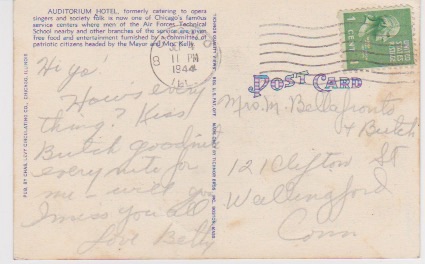 AUDITORIUM HOTEL, formerly catering to opera
singers and society folk is now one of Chicago's famous
service centers where men of the Air Forces Technical
School nearby and other branches of the service are given
free food and entertainment furnished by a committee of
patriotic citizens headed by the Mayor and Mrs. Kelly.
11 PM
1944
ILL.
1 CENT 1
POST CARD
Hi ya'
How's every
thing? Kiss
Butch goodnite
every nite for
me – will you
I miss you all
Love Betty
Mrs. M. Bellafronto
& Butch
121 Clifton St
Wallingford
Conn
PUB. BY CHAS. LEVY CIRCULATING CO., CHICAGO, ILLINOIS